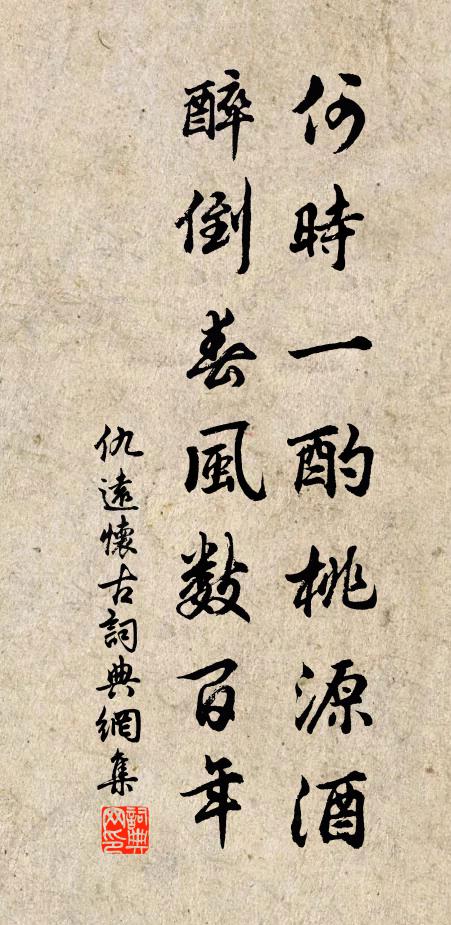 何時一酌桃源酒
醉倒春風數百年
仇遠懷古詞典網集
詞典
網印